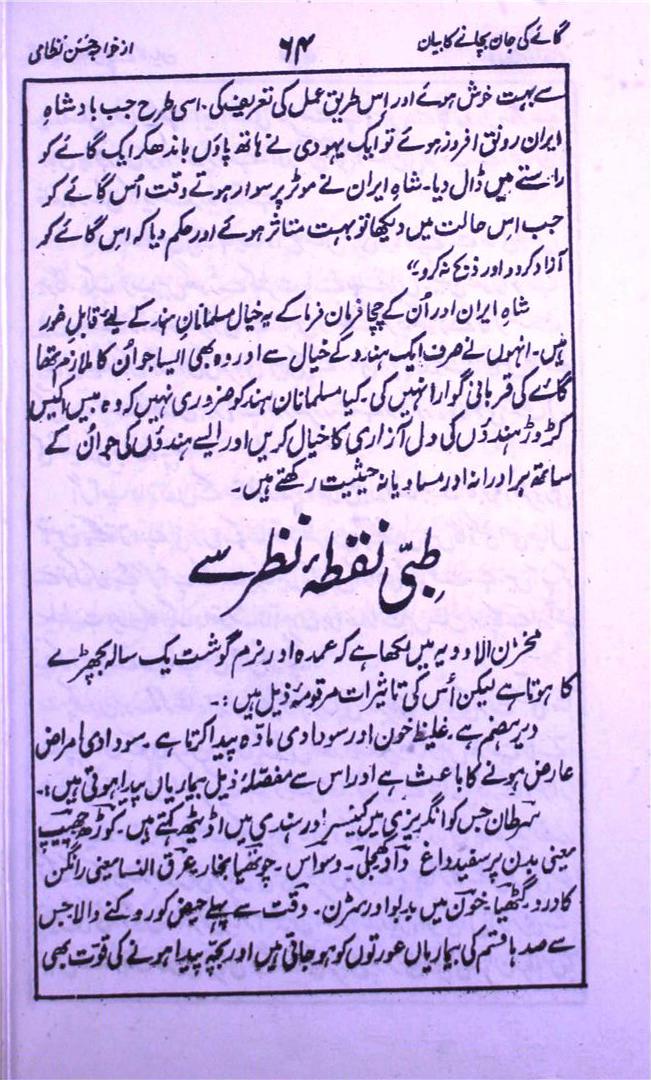 گائے کی جان بچانے کا بیان ۶۴ از خواجہ حسن نظامی
سے بہت خوش ہوئے اور اس طریق عمل کی تعریف کی۔ اسی طرح جب بادشاہ
ایران رونق افروز ہوئے تو ایک یہودی نے ہاتھ پاؤں باندھکر ایک گائے کو
راستے میں ڈال دیا۔ شاہ ایران نے موٹر پر سوار ہوتے وقت اُس گائے کو
جب اس حالت میں دیکھا تو بہت متاثر ہوئے اور حکم دیا کہ اس گائے کو
آزاد کردو اور ذبح نہ کرو۔“
شاہِ ایران اور اُن کے چچا فرمان فرما کے یہ خیال مسلمانان ہند کے لئے قابل غور
ہیں۔ انہوں نے صرف ایک ہندو کے خیال سے اور وہ بھی ایسا جو اُن کا ملازم تھا
گائے کی قربانی گوارا نہیں کی۔ کیا مسلمانان ہند کو ضروری نہیں کہ وہ بیس اکیس
کروڑ ہندؤں کی دل آزاری کا خیال کریں اور ایسے ہندؤں کی جو اُن کے
ساتھ برادرانہ اور مساویانہ حیثیت رکھتے ہیں۔
طبّی نقطۂ نظر سے
مخزن الادویہ میں لکھا ہے کہ عمدہ اور نرم گوشت یک سالہ بچھڑے
کا ہوتا ہے لیکن اُس کی تاثیرات مرقومۂ ذیل ہیں:۔
دیر ہضم ہے۔ غلیظ خون اور سوداوی مادّہ پیدا کرتا ہے۔ سوداوی امراض
عارض ہونے کا باعث ہے اور اس سے مفصّلۂ ذیل بیماریاں پیدا ہوتی ہیں:۔
سرطان جس کو انگریزی میں کینسر اور ہندی میں اڈیٹھ کہتے ہیں۔ کوڑھ چھیپ
یعنی بدن پر سفید داغ داد کھجلی۔ وسواس۔ چوتھیا بخار عرق النسا یعنی رانگن
کا درد۔ گٹھیا۔ خون میں بدبو اور سڑن۔ وقت سے پہلے حیض کو روکنے والا جس
سے صدہا قسم کی بیماریاں عورتوں کو ہو جاتی ہیں اور بچّہ پیدا ہونے کی قوت بھی